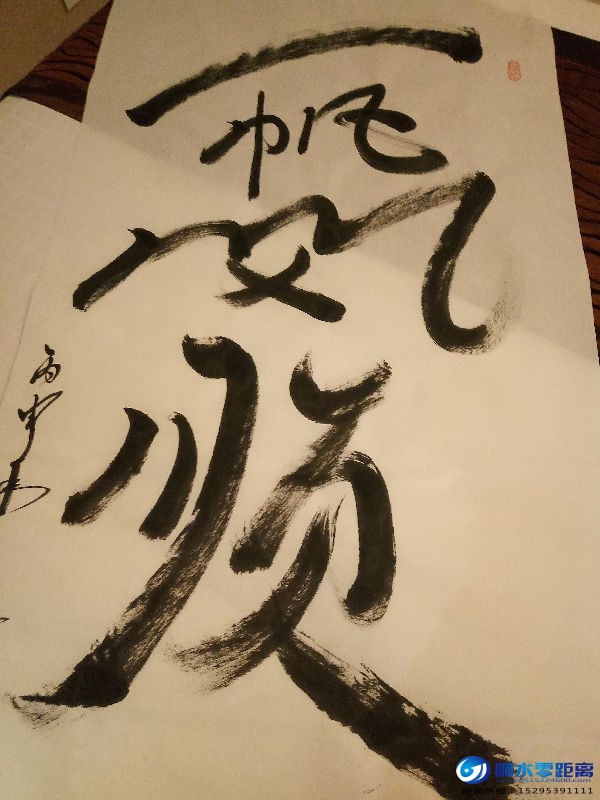 一
帆
风
顺
丙申
响水零距离
15295391111